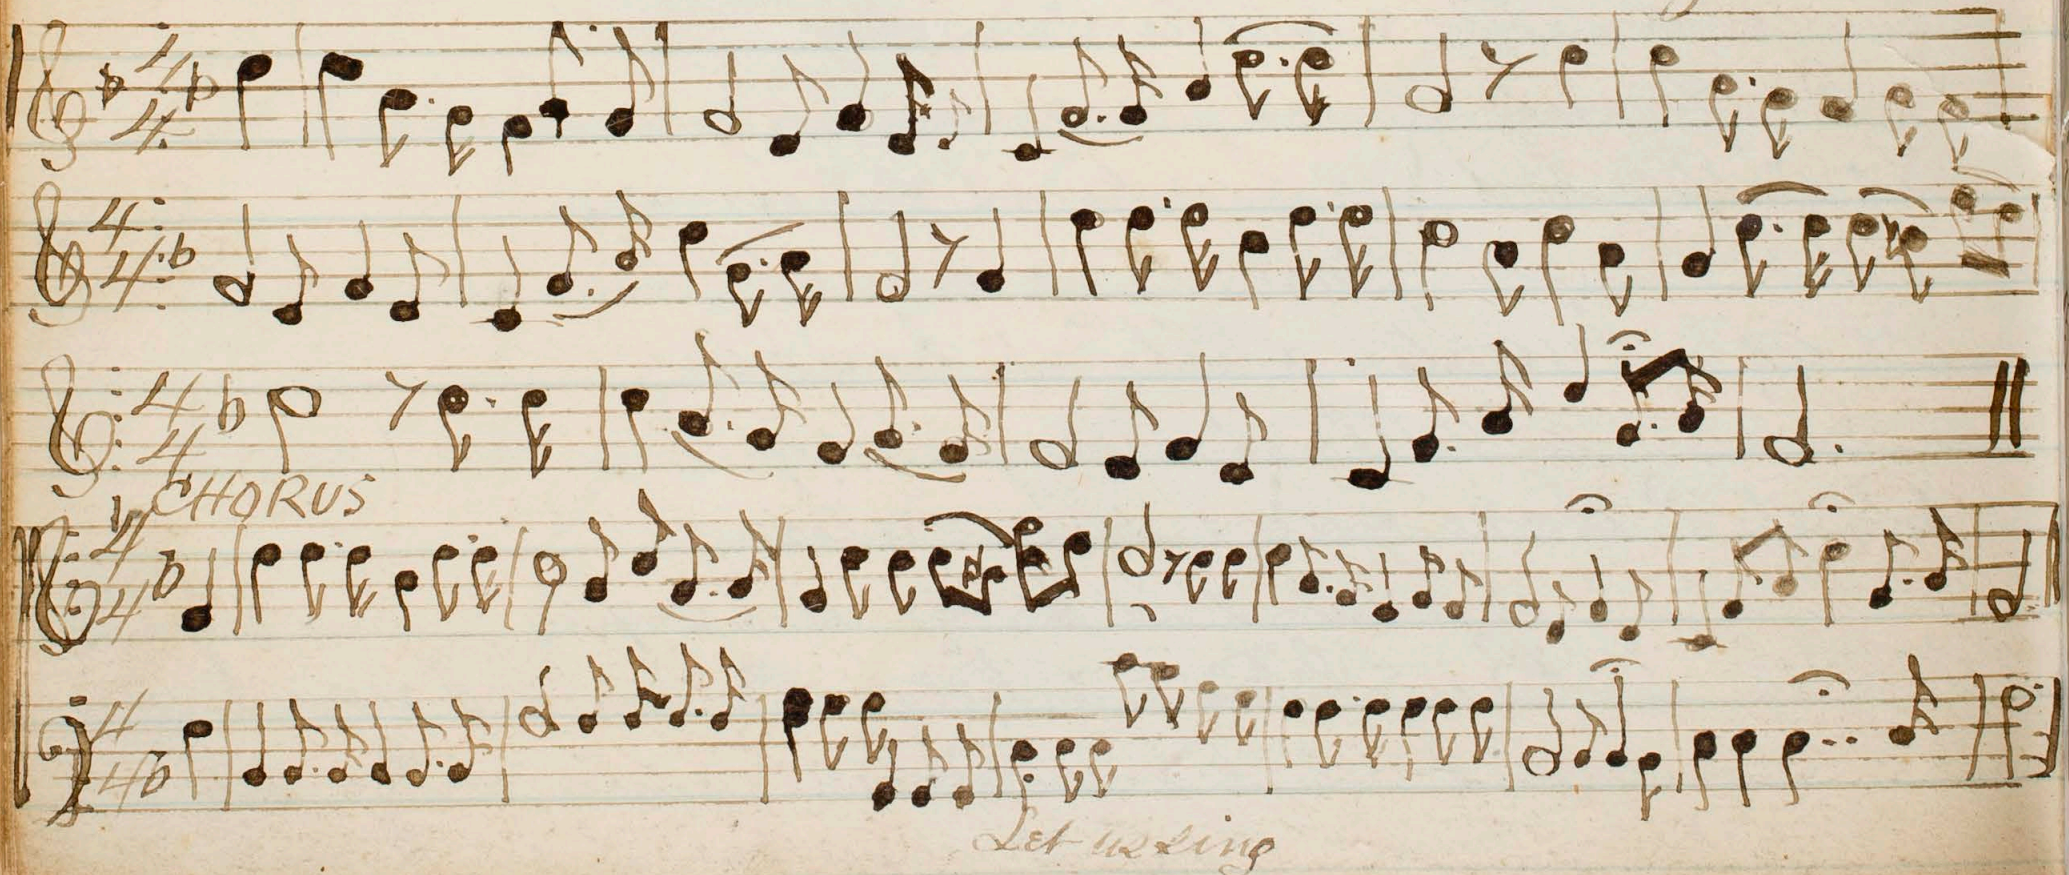 CHORUS
Let us sing